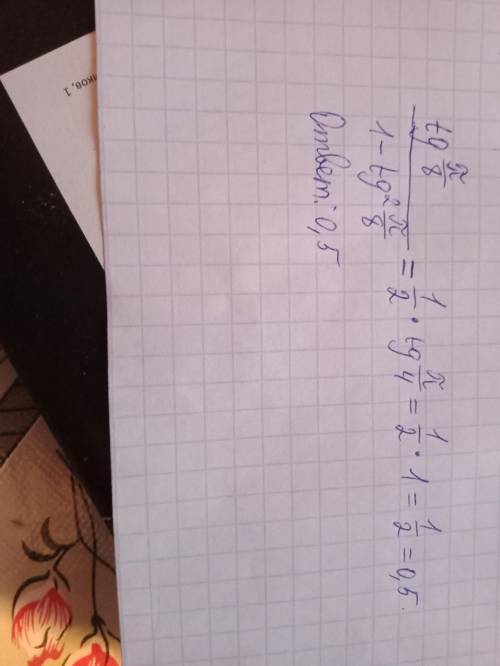 tg π/8 / 1 - tg² π/8 = 1/2 · tg π/4 = 1/2 · 1 = 1/2 = 0,5.
Ответ: 0,5